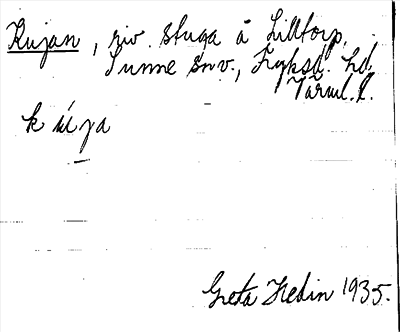 Kujan, riv. stuga å Lilltorp,
Sunne snv., Fryksd. hd
Värml. l.
k úya
Greta Hedin 1935.